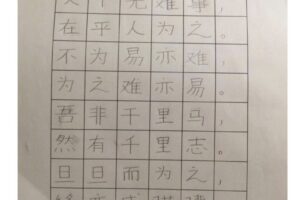 无难事，
在乎人为之。
不为易亦难，
为之难亦易。
吾非千里马，
然有千里志。
旦旦而为之，